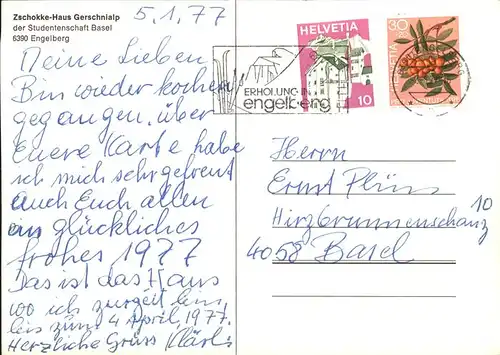 Zschokke-Haus Gerschnialp
der Studentenschaft Basel
6390 Engelberg
5.1.77
Meine Lieben
Bin wieder kochen
gegangen, über
Euere Karte habe
ich mich sehr gefreut
auch Euch allen
ein glückliches
frohes 1977
Das ist das Haus
wo ich zurzeit bin
bis zum 4 April 1977.
Herzliche Grüss Klärli
ERHOLUNG IN
engelberg
HELVETIA
10
30
HELVETIA
Herrn
Ernst Plüss
Hirzbrunnenschanz
10
4058 Basel